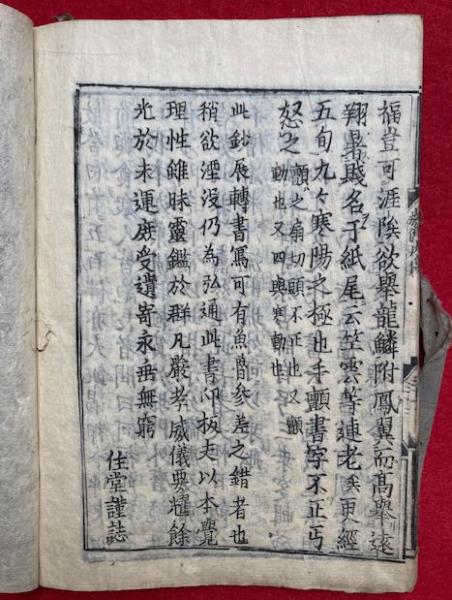 福豈可涯陒欲攀龍鱗附鳳翼而高舉遠
翔暑賤名于紙尾云笠雲等連老矣更經
五旬九々寒陽之極也手顫書字不正丐
恕之 顫之扇切頭不正也又顫
動也又四興寒動也
此鈔展轉書寫可有魚魯參差之錯者也
稍欲湮没仍為弘通此書叩板夫以本覺
理性雖昧靈鑑於群凡嚴孝威儀要耀餘
光於未運庶受遺寄永垂無窮
住堂謹誌